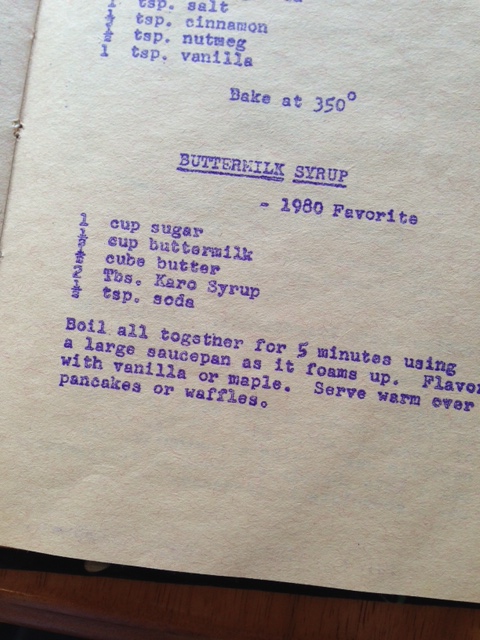 tsp. salt
½ tsp. cinnamon
½ tsp. nutmeg
1 tsp. vanilla
Bake at 350°
BUTTERMILK SYRUP
- 1980 Favorite
1 cup sugar
½ cup buttermilk
cube butter
2 Tbs. Karo Syrup
½ tsp. soda
Boil all together for 5 minutes using
a large saucepan as it foams up. Flavor
with vanilla or maple. Serve warm over
pancakes or waffles.